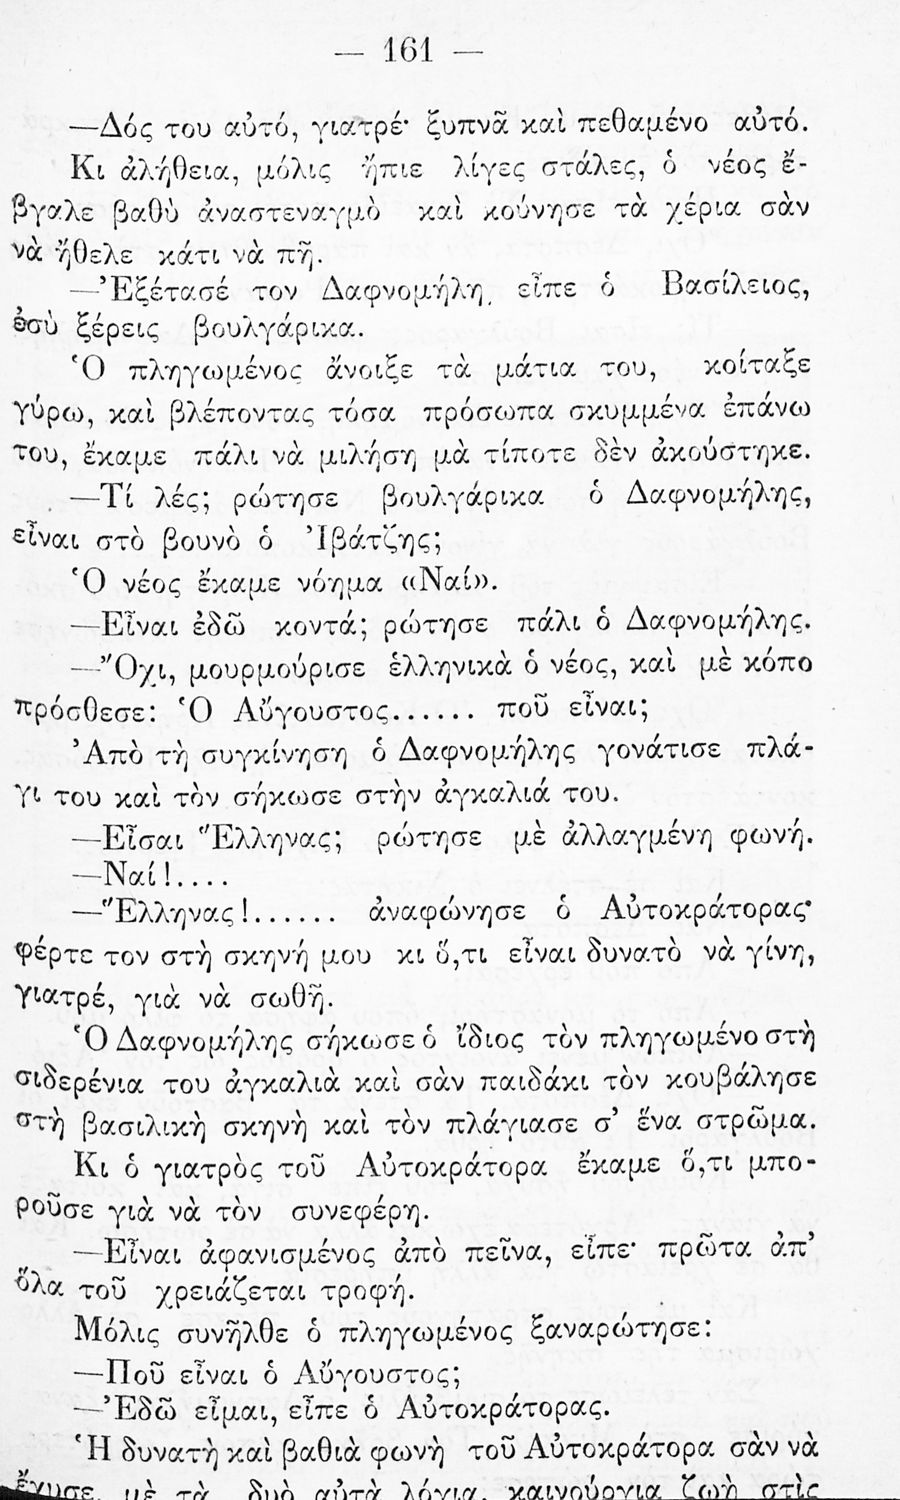 — 161 —
—Δός του αὐτό, γιατρέ· ξυπνᾶ καὶ πεθαμένο αὐτό.
Κι ἀλήθεια, μόλις ἤπιε λίγες στάλες, ὁ νέος ἔ-
βγαλε βαθὺ ἀναστεναγμὸ καὶ κούνησε τὰ χέρια σὰν
νὰ ἤθελε κάτι νὰ πῆ.
—Ἐξέτασέ τον Δαφνομήλη, εἶπε ὁ Βασίλειος,
ἐσὺ ξέρεις βουλγάρικα.
Ὁ πληγωμένος ἄνοιξε τὰ μάτια του, κοίταξε
γύρω, καὶ βλέποντας τόσα πρόσωπα σκυμμένα ἐπάνω
του, ἔκαμε πάλι νὰ μιλήση μὰ τίποτε δὲν ἀκούστηκε.
—Τί λές; ρώτησε βουλγάρικα ὁ Δαφνομήλης,
εἶναι στὸ βουνὸ ὁ Ἰβάτζης;
Ὁ νέος ἔκαμε νόημα «Ναί».
—Εἶναι ἐδῶ κοντά; ρώτησε πάλι ὁ Δαφνομήλης.
—Ὄχι, μουρμούρισε ἑλληνικὰ ὁ νέος, καὶ μὲ κόπο
πρόσθεσε: Ὁ Αὔγουστος...... ποῦ εἶναι;
Ἀπὸ τὴ συγκίνηση ὁ Δαφνομήλης γονάτισε πλά-
γι του καὶ τὸν σήκωσε στὴν ἀγκαλιά του.
—Εἶσαι Ἕλληνας; ρώτησε μὲ ἀλλαγμένη φωνή.
—Ναί!....
—Ἕλληνας!...... ἀναφώνησε ὁ Αὐτοκράτορας·
φέρτε τον στὴ σκηνή μου κι ὅ,τι εἶναι δυνατὸ νὰ γίνη,
γιατρέ, γιὰ νὰ σωθῆ.
Ὁ Δαφνομήλης σήκωσε ὁ ἴδιος τὸν πληγωμένο στὴ
σιδερένια του ἀγκαλιὰ καὶ σὰν παιδάκι τὸν κουβάλησε
στὴ βασιλικὴ σκηνὴ καὶ τὸν πλάγιασε σ’ ἕνα στρῶμα.
Κι ὁ γιατρὸς τοῦ Αὐτοκράτορα ἔκαμε ὅ,τι μπο-
ροῦσε γιὰ νὰ τὸν συνεφέρη.
—Εἶναι ἀφανισμένος ἀπὸ πεῖνα, εἶπε· πρῶτα ἀπ’
ὅλα τοῦ χρειάζεται τροφή.
Μόλις συνῆλθε ὁ πληγωμένος ξαναρώτησε:
—Ποῦ εἶναι ὁ Αὔγουστος;
—Ἐδῶ εἶμαι, εἶπε ὁ Αὐτοκράτορας.
Ἡ δυνατὴ καὶ βαθιὰ φωνὴ τοῦ Αὐτοκράτορα σὰν νὰ
ἔχυσε, μὲ τὰ δυὸ αὐτὰ λόγια, καινούργια ζωὴ στὶς